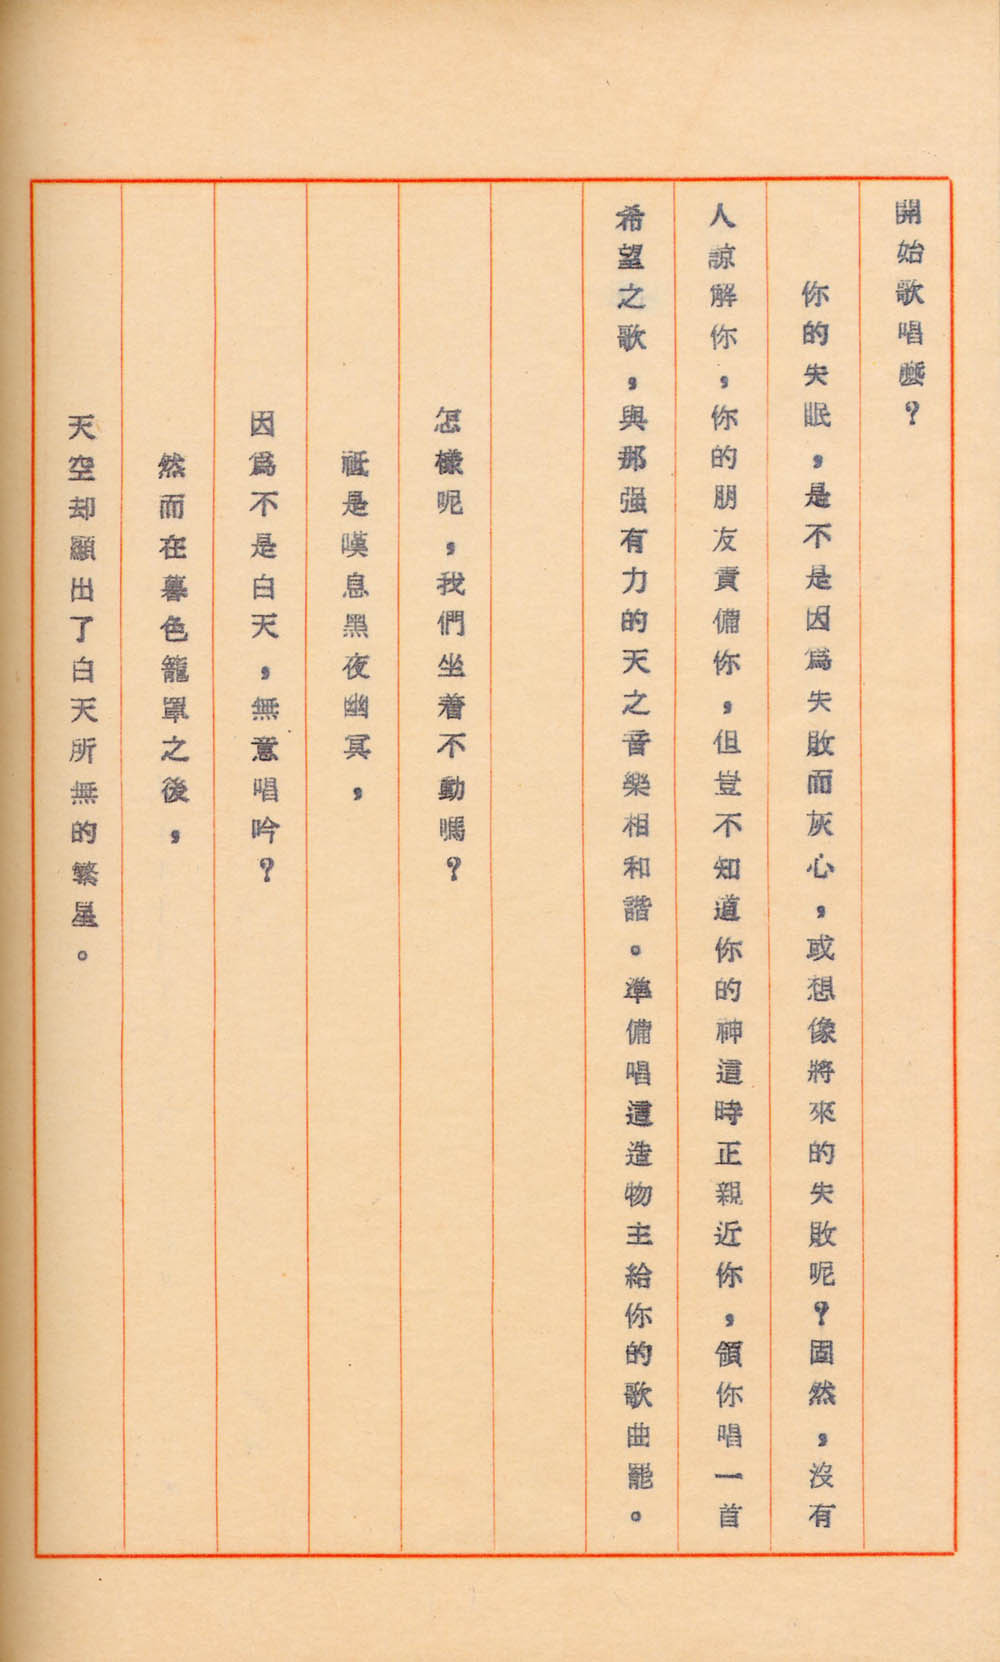 開始歌唱麽？
你的失眠，是不是因爲失敗而灰心，或想像將來的失敗呢？固然，沒有
人諒解你，你的朋友責備你，但豈不知道你的神這時正親近你，領你唱一首
希望之歌，與那强有力的天之音樂相和諧。準備唱這造物主給你的歌曲罷。
怎樣呢，我們坐着不動嗎？
祗是嘆息黑夜幽冥，
因爲不是白天，無意唱吟？
然而在暮色籠罩之後，
天空却顯出了白天所無的繁星。